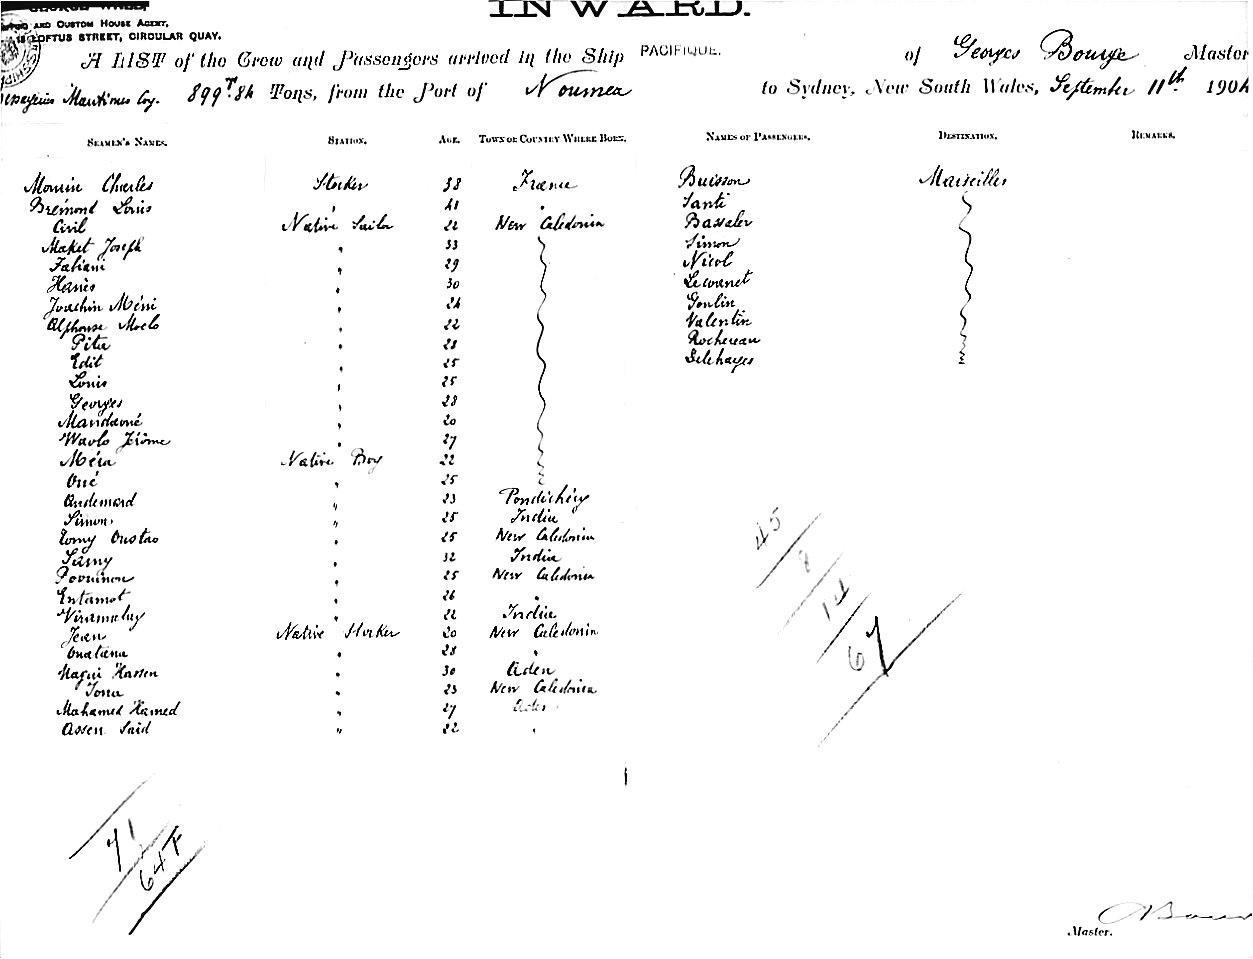 INWARD.
AND CUSTOM HOUSE AGENT,
LOFTUS STREET, CIRCULAR QUAY.
A LIST of the Crew and Passengers arrived in the Ship PACIFIQUE. of Georges Bourge Master
Maritimes Coy. 899 T. 84 Tons, from the Port of Noumea to Sydney, New South Wales, September 11th 1904
SEAMEN'S NAMES. STATION. AGE. TOWN OR COUNTRY WHERE BORN. NAMES OF PASSENGERS. DESTINATION. REMARKS.
Charles Stoker 38 France Buisson Marseilles
Bremond Louis " 41 " Santi
Civil Native Sailor 22 New Caledonia Bassaler
Maket Joseph " 33 Simon
Fabiani " 29 Nicol
Hanès " 30 Lecornet
Joachin Méni " 24 Goulin
Alphonse Moelo " 22 Valentin
Pita " 28 Rochereau
Edit " 25 Delehayes
Louis " 25
Georges " 28
Mandaoué " 20
Waolo Jérôme " 27
Méra Native Boy 22
Oué " 25
Andemard " 23 Pondichéry
Simon " 25 India
Tomy Oustao " 25 New Caledonia
Samy " 32 India
Povninon " 25 New Caledonia
Entamot " 26 "
Viramalay " 22 India
Jean Native Stoker 20 New Caledonia
Ouatana " 28 "
Nagui Hassen " 30 Aden
Tona " 23 New Caledonia
Mahamed Hamed " 27 Aden
Assen Said " 22 "
45
8
14
67
71
64 F
Master.